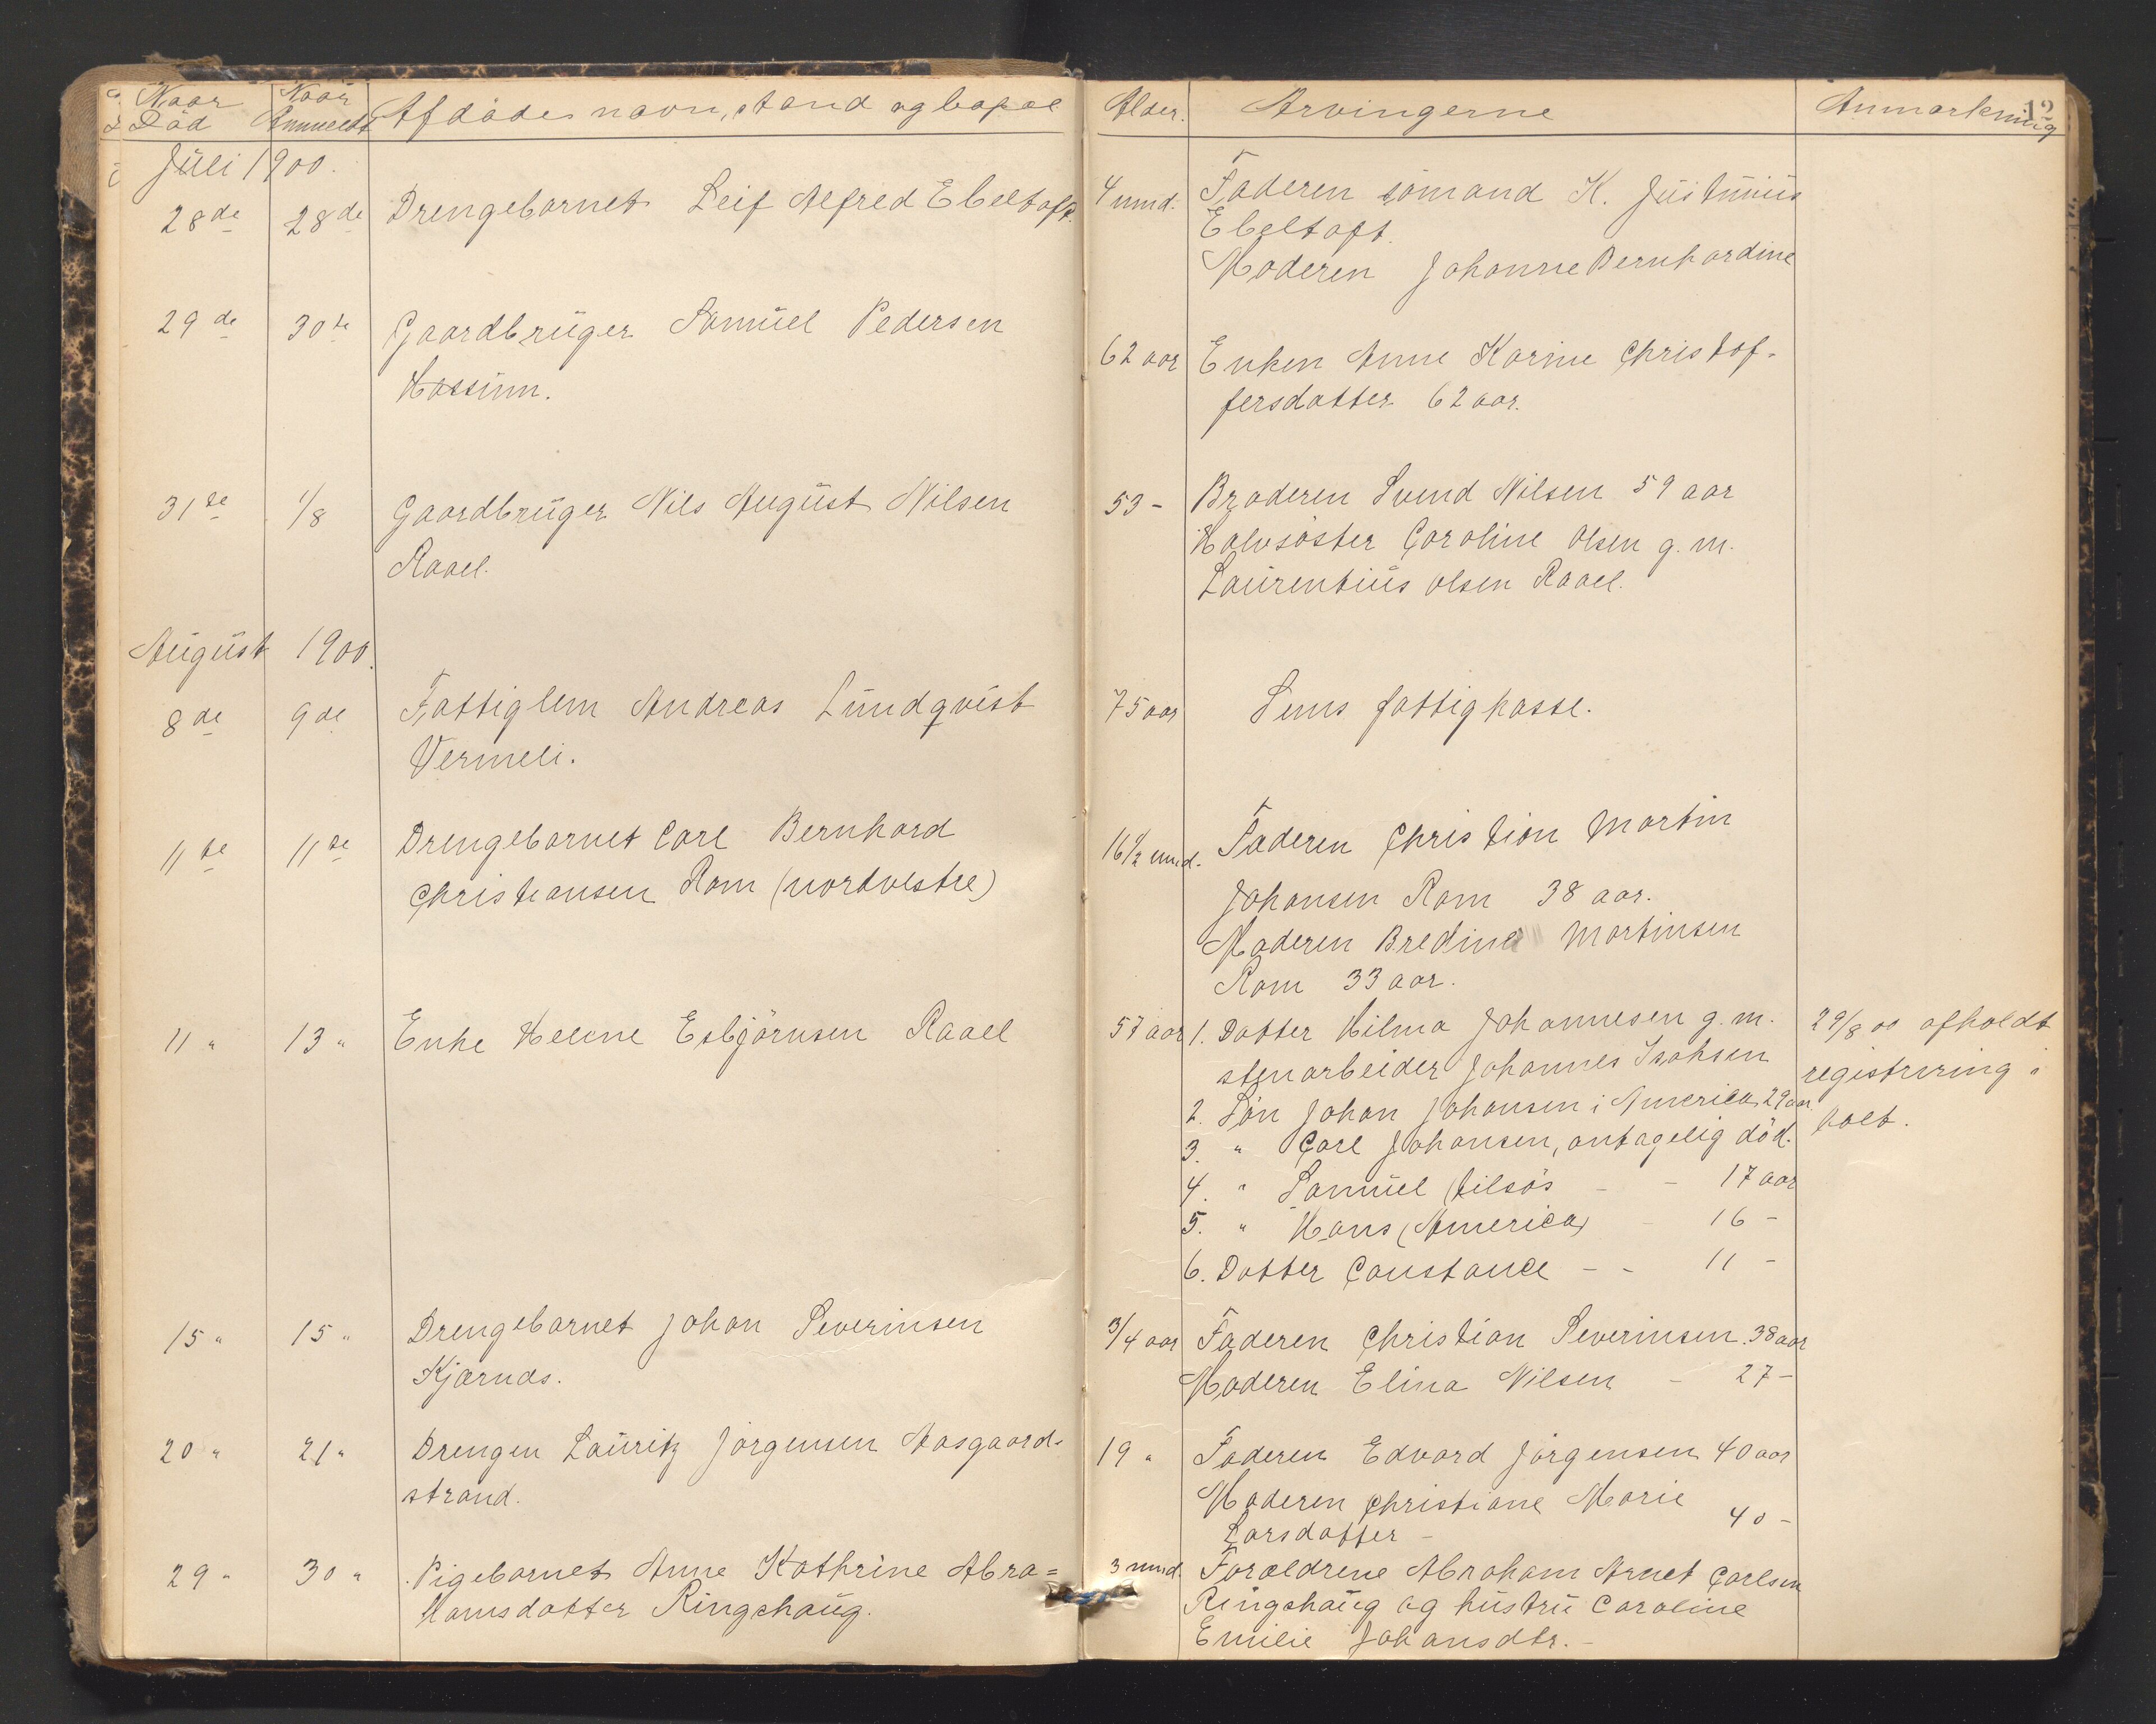 Naar Död
Naar Anmeldt
Afdödes navn, stand og bopæl
Alder.
Arvingerne
Anmærkning
12
Juli 1900.
28de 28de Drengebarnet Leif Alfred Ebeltoft. 4 mnd. Faderen sömand K. Justinius
Ebeltoft.
Moderen Johanne Bernhardine
29de 30te Gaardbruger Samuel Pedersen
62 aar Enken Anne Karine Christof-
Hassum.
fersdatter 62 aar.
31te 1/8 Gaardbruger Nils August Nilsen 53 - Broderen Svend Nilsen 59 aar
Halvsöster Caroline Olsen g. m.
Raael.
Laurentius Olsen Raael.
August 1900.
8de 9de Fattiglem Andreas Lundqvist 75 aar Sems fattigkasse.
Vermeli.
11te 11te Drengebarnet Carl Bernhard 16 1/2 mnd. Faderen Christian Martin
Christiansen Ram (nordvestre)
Johansen Ram 38 aar.
Moderen Bredine Martinsen
Ram 33 aar.
11 " 13 " Enke Helene Esbjörnsen Raael 57 aar 1. Datter Hilma Johannesen g. m. 29/8 00 afholdt
stenarbeider Johannes Isaksen registrering i
2. Sön Johan Johansen i America 29 aar
boet.
3. " Carl Johansen, antagelig död.
4. " Samuel (tilsös - - 17 aar
5. " Hans (America) - 16 -
6. Datter Constance - - 11 -
15 " 15 " Drengebarnet Johan Severinsen 3/4 aar Faderen Christian Severinsen 38 aar
Kjærnås. Moderen Elina Nilsen - 27 -
20 " 21 " Drengen Lauritz Jörgensen Aasgaard- 19 " Faderen Edvard Jörgensen 40 aar
strand. Moderen Christiane Marie
Larsdatter - 40 -
29 " 30 " Pigebarnet Anne Kathrine Abra= 3 mnd. Forældrene Abraham Arnet Carlsen
hamsdatter Ringshaug. Ringshaug og hustru Caroline
Emilie Johansdtr. -